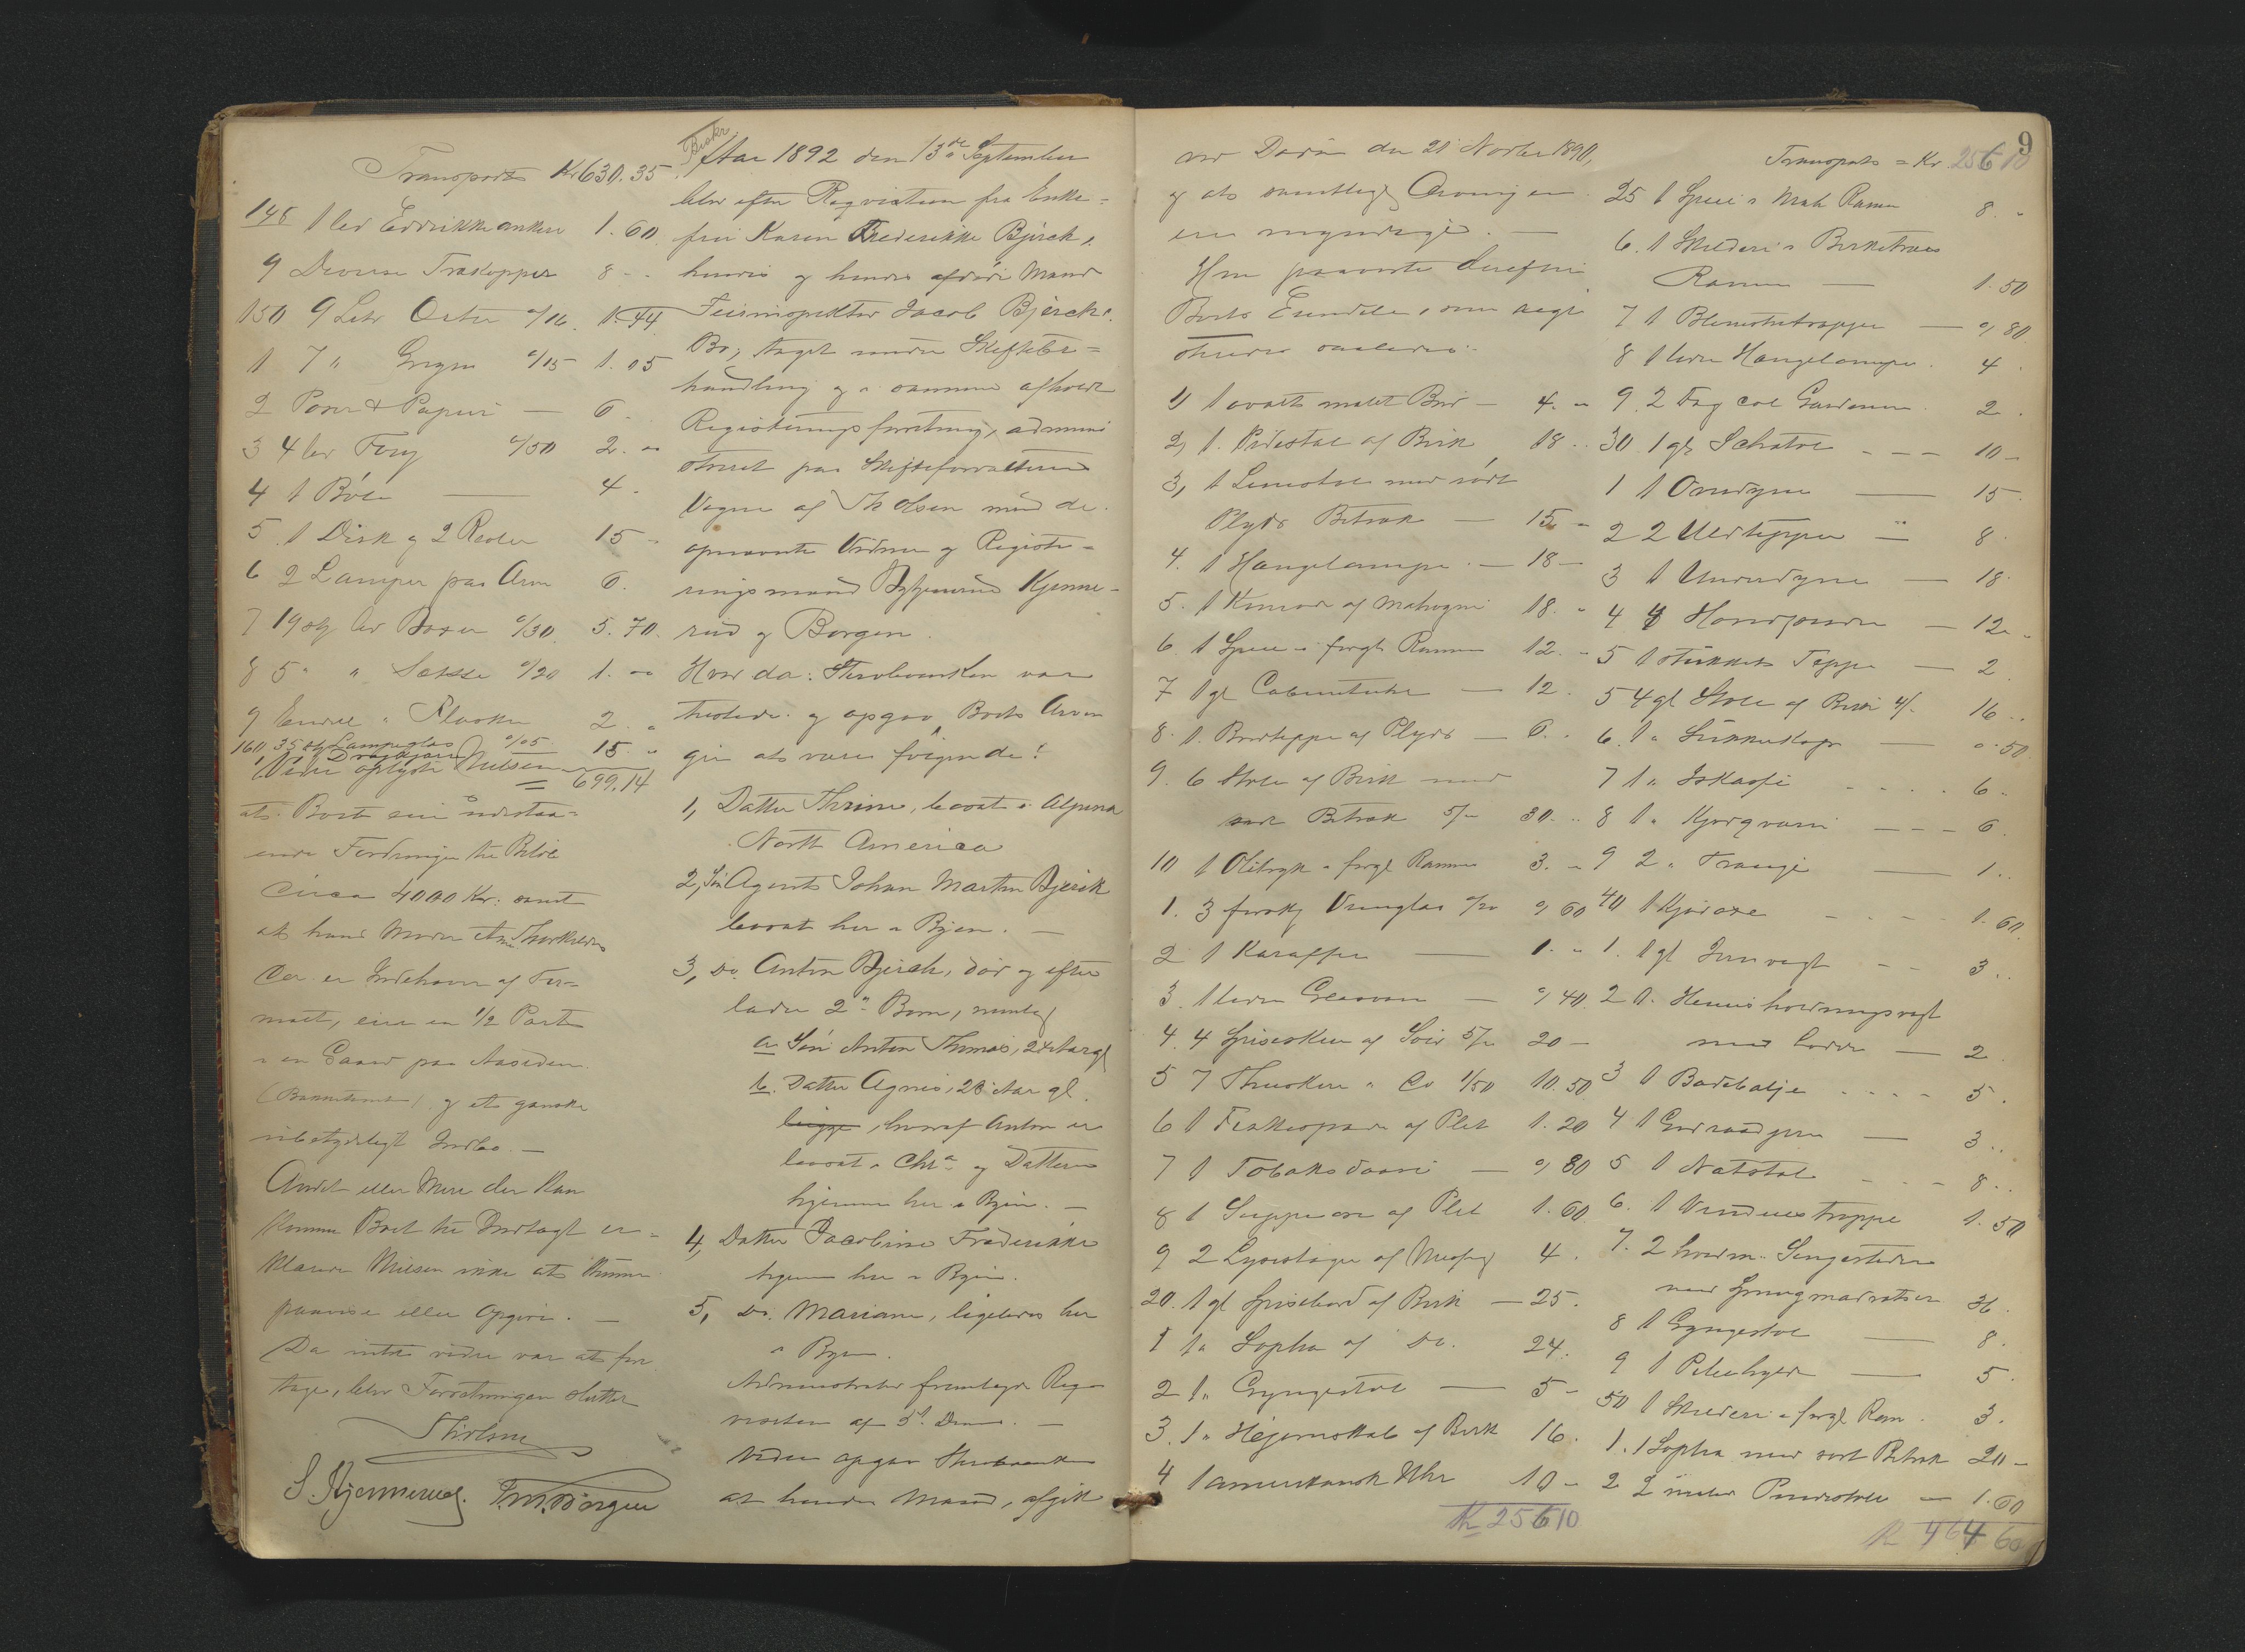 Transport Kr 630.35
148 1 lev Eddikkeanker 1.60
9 Diverse Trækopper 8 -
150 9 Ltr Erter a/16 1.44
1 7 " Gryn a/15 1.05
2 Poser & Papir — 6.
3 4 lev a/50 2. -
4 1 — 4.
5 1 Disk og 2 Reoler 15 -
6 2 Lamper paa Arm 6.
7 19 stk lev Boxer a/30 5.70
8 5 " " a/20 1. -
9 Endel " Flasker 2 -
160, 35 stk Lampeglas a/05 15. -
Videre oplyste Nielsen = 699.14
at Boet eier udestaa-
ende Fordringer til Beløb
Circa 4000 Kr. samt
at hans Moder
der er Indehaver af Fir-
maet, eier en 1/2 Part
i en Gaard paa Aassiden
og et ganske
ubetydeligt Indbo. —
Andet eller Mere der kan
komme Boet til Indtægt er-
klærede Nielsen ikke at kunne
paavise eller opgive. —
Da intet videre var at fore
tage, blev Forretningen sluttet
Th. Olsen
S. Kjennerud. Borgen
Beskr.
Aar 1892 den 13de September
blev efter Reqvisition fra Enke-
fru Karen Frederikke Bjerck,
hendes og hendes afdøde Mand
Feierinspektør Jacob Bjercks
Bo, taget under Skiftebe-
handling og i samme afholdt
Registreringsforretning, admini
streret paa Skifteforvalterens
Vegne af Th Olsen med de
opnævnte Vidner og Registe-
ringsmænd Kjenne-
rud og Borgen.
Hvor da: Sterboenken var
tilstede og opgav Boets Arvin
ger at være følgende:
1, Datter Thrine, bosat i Alpena
North America
2, Søn Agent Johan Martin Bjerck
bosat her i Byen. —
3, Do. Anton Bjerck, død og efter
lader 2de Børn, nemlig
a Søn Anton Thomas, 24 Aar gl
b. Datter Agnes, 20 Aar gl.
begge, hvoraf Anton er
bosat i Chra og Datteren
hjemme her i Byen. —
4, Datter Jacobine Frederikke
hjemme her i Byen.
5, Do. Mariane, ligeledes her
i Byen.
Administrator fremlagde Reqvi
sition af 3d Dennes. —
Videre opgav Sterboenken
at hendes Mand, afgik
ved Døden den 21 Novbr 1890,
og at samtlige Arvinger
ere myndige. —
Hun paaviste derefter
Boets Eiendele, som regi
streredes saaledes:
1 1 ovalt malet Bord — 4. -
2, 1 Pidestal af Birk 18 -
3, 1 Lænestol med rødt
Plyds Betræk — 15 -
4. 1 Hængelampe — 18 -
5. 1 Komode af Mahogni 18. -
6. 1 Speil i forgl Ramme 12. -
7 1 gl — 12.
8. 1 Bordteppe af Plyds — 6.
9. 6 Stole af Birk med
rødt Betræk 5/- 30 -
10 1 Olitryk i forgl Ramme 3. -
1. 3 forskj Vinglas a/20 0,60
2 1 Karaffel — 1. -
3. 1 liden — 0,40
4. 4 Spiseskeer af Sølv 5/- 20 -
5 7 Theskeer " Do 1/50 10.50
6 1 Fiskespade af Plet 1.20
7 1 Tobaksdaase — 0,80
8 1 Suppeøse af Plet 1.60
9 2 Lysestager af Messing 4.
20. 1 gl Spisebord af Birk — 25.
1 1 " Sopha af Do. 24.
2 1 " Gyngestol — 5 -
3. 1 " Hjørneskab af Birk 16.
4 1 amerikansk Uhr 10 -
Kr 256 10
9
Transport = Kr 256 10
25 1 Speil i Mah Ramme 8. -
6. 1 Skilderi i Birketræs
Ramme — 1.50
7 1 Blomstertrappe — 0,80
8 1 liden Hængelampe 4.
9 2 Fag Gardiner 2.
30 1 gl Schatol — 10 -
1 1 Overdyne — 15 -
2 2 Uldtepper — 8.
3 1 Underdyne — 18.
4 4 Hovedpuder — 12 -
5 1 strikket Teppe — 2
5 4 gl Stole af Birk 4/- 16 -
6. 1 " — 0.50
7 1 " — 6 -
8 1 " Kjødqværn — 6.
9 2 " — 1 -
40 1 Kjødøxe — 1.60
1. 1 gl Jernvægt — 3 -
2 1 Huusholdningsvægt
med Lodder — 2.
3 1 Badebalje — 5.
4 1 — 3 -
5 1 Natstol — 8 -
6. 1 Vinduestrappe 1.50
7. 2 hvidm. Sengesteder
med Springmadratser 36.
8 1 Gyngestol — 8.
9 1 — 5.
50 1 Skilderi i forgl Ram 3.
1. 1 Sopha med sort Betræk 20 -
2 2 — 1.60
Kr 464 60